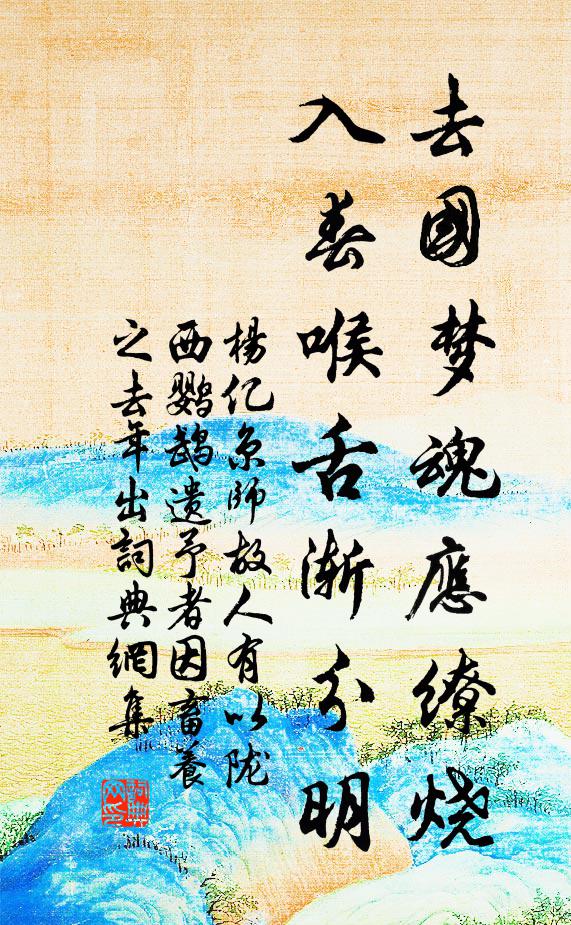 去國梦魂應缭烧
入春喉舌渐分明
楊亿京師故人有以陇
西鹦鹉遗予者因畜養
之去年出詞典網集